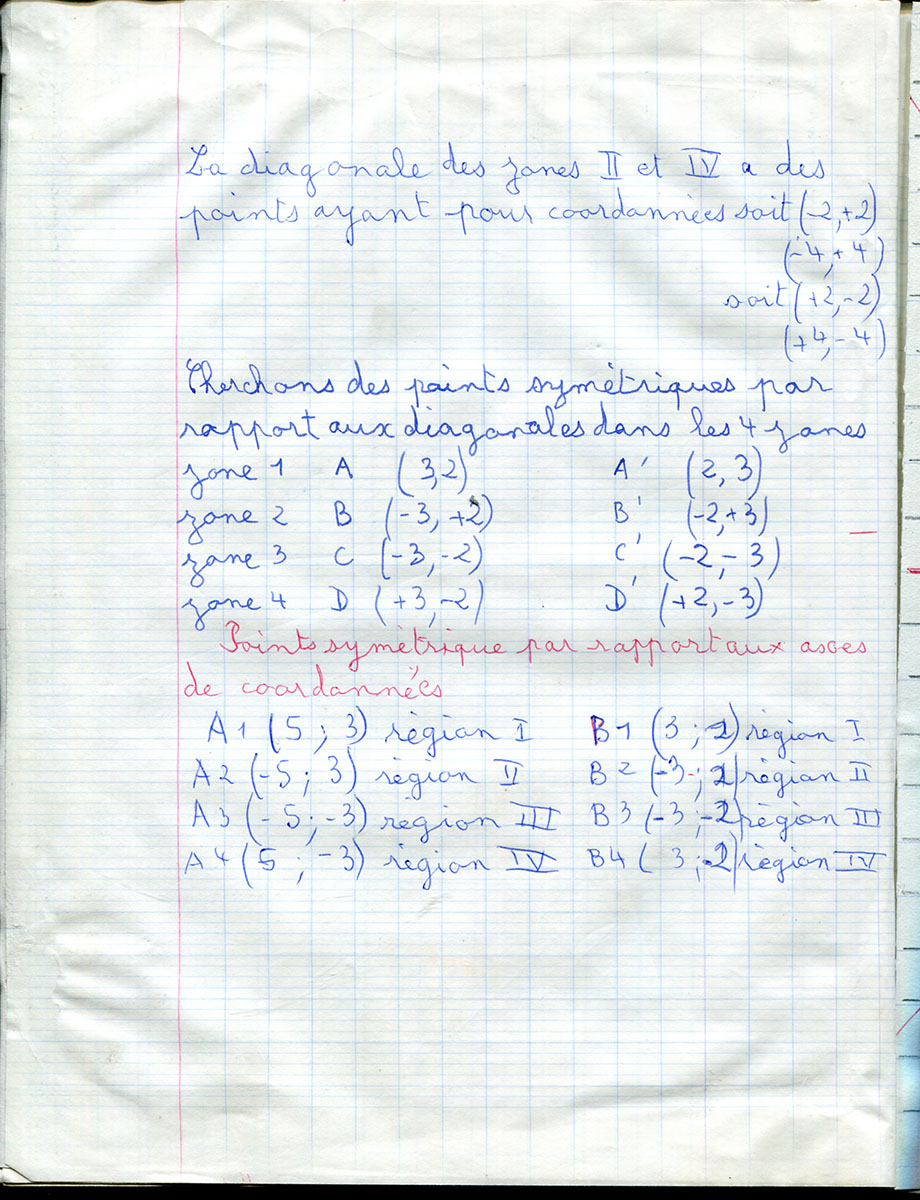 La diagonale des zones II et IV a des
points ayant pour coordonnées soit (-2,+2)
(-4,+4)
soit (+2,-2)
(+4,-4)
Cherchons des points symétriques par
rapport aux diagonales dans les 4 zones
zone 1 A (3,2) A' (2, 3)
zone 2 B (-3, +2) B' (-2,+3)
zone 3 C (-3,-2) C' (-2,-3)
zone 4 D (+3,-2) D' (+2,-3)
Points symétrique par rapport aux axes
de coordonnées
A1 (5 ; 3) région I B1 (3 ; 2) région I
A2 (-5 ; 3) région II B2 (-3 ; 2) région II
A3 (-5 ; -3) région III B3 (-3 ; -2) région III
A4 (5 ; -3) région IV B4 ( 3 ; -2) région IV